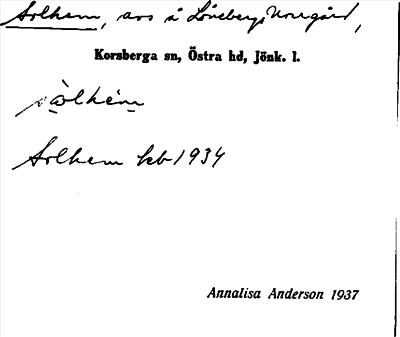 Solhem, avs å Löneberga Norrgård,
Korsberga sn, Östra hd, Jönk. l.
sòlhém
Solhem kb 1934
Annalisa Anderson 1937